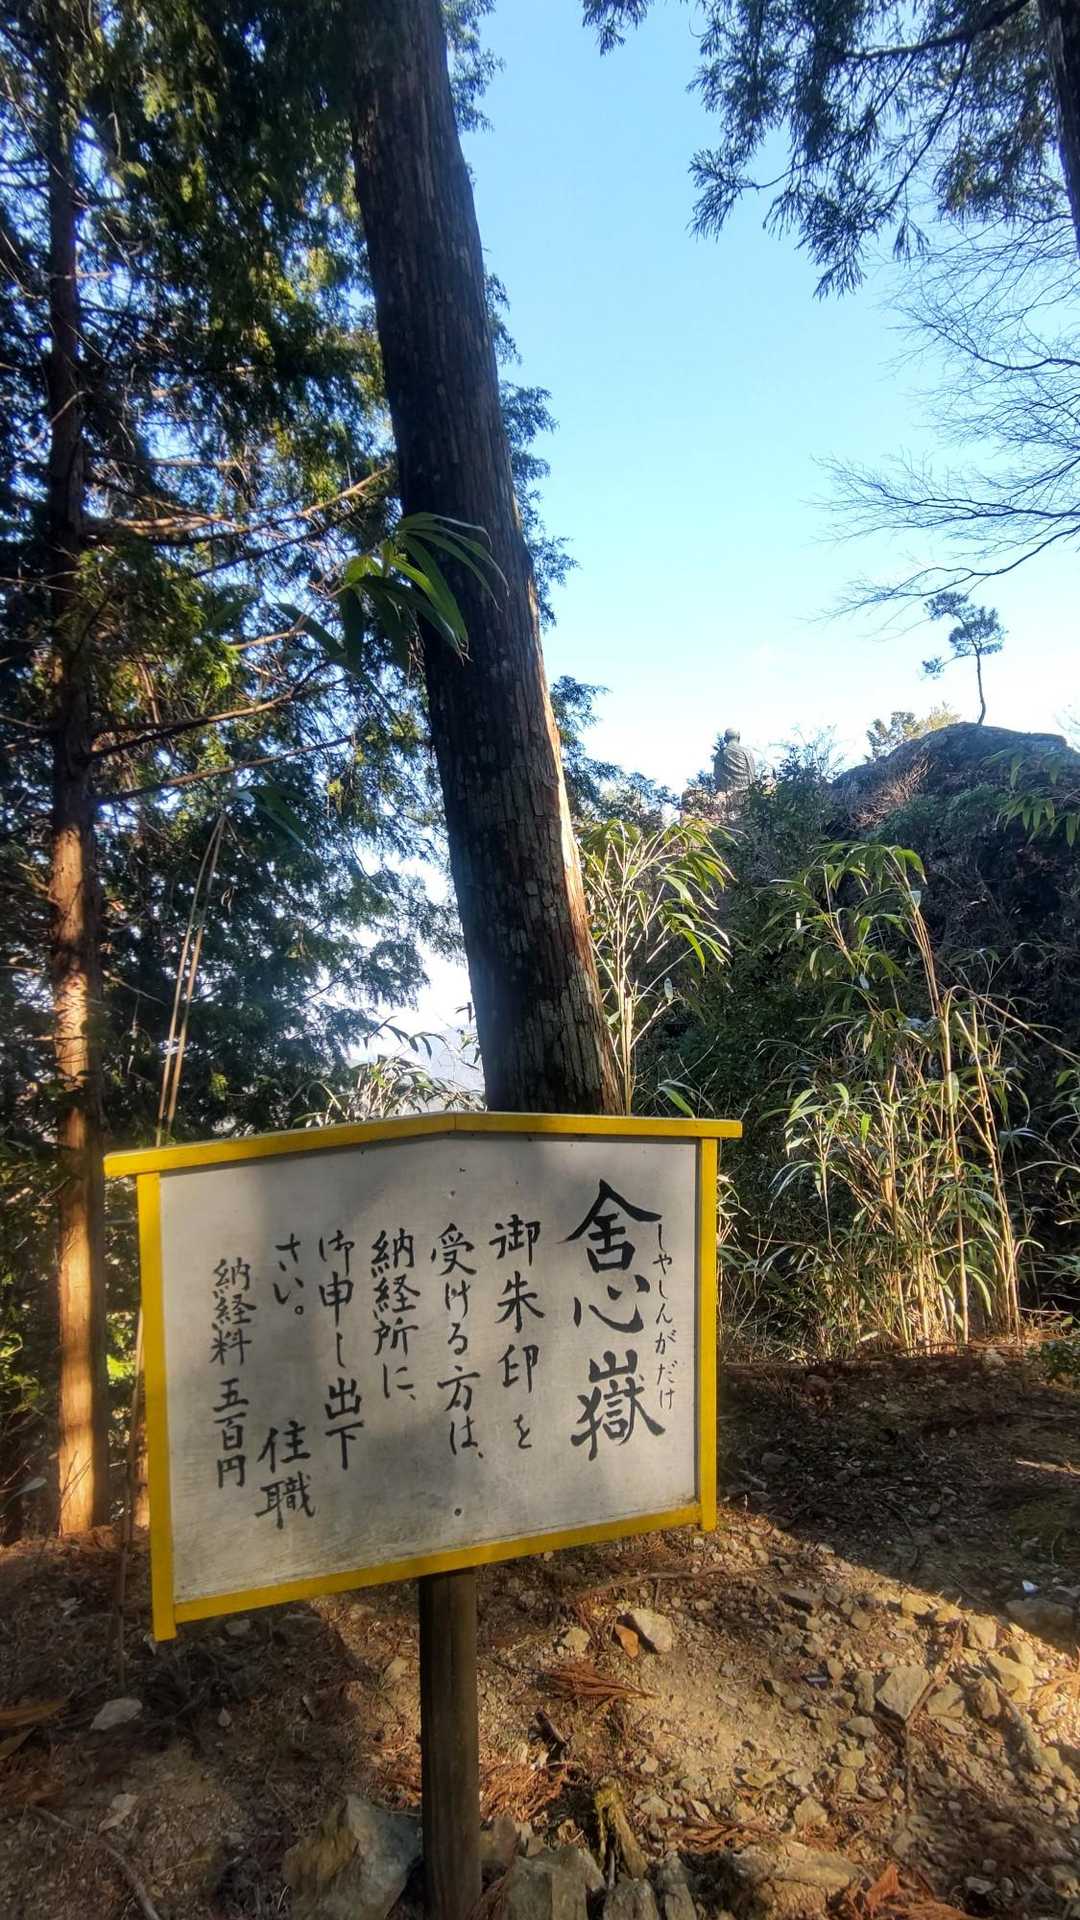 舎心嶽
しゃしんがだけ
御朱印を
受ける方は、
納経所に、
御申し出下
さい。
住職
納経料 五百円